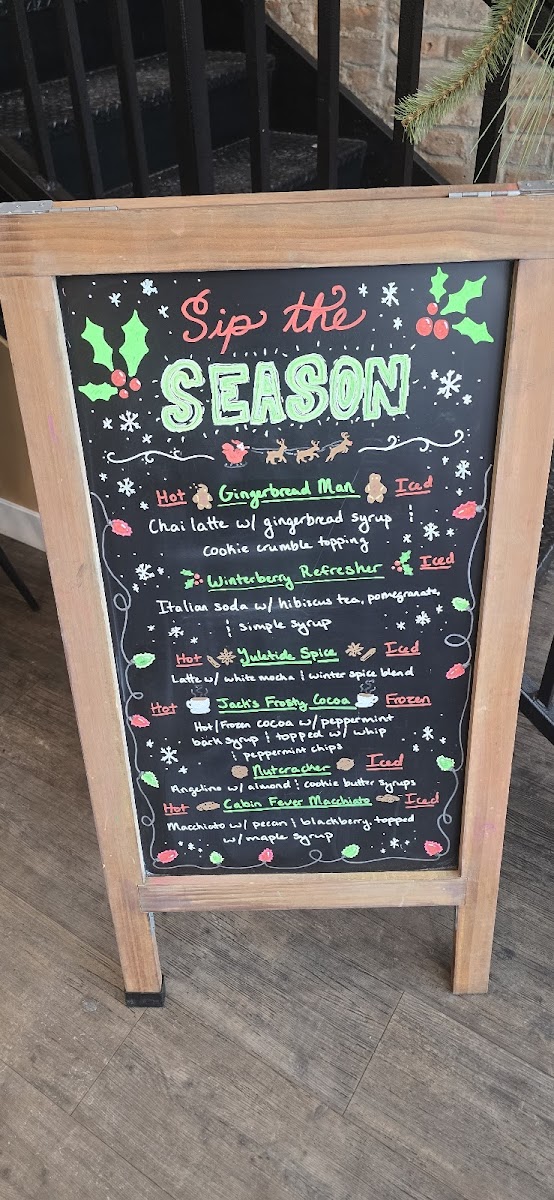 Sip the
SEASON
Hot Gingerbread Man Iced
Chai latte w/ gingerbread syrup &
cookie crumble topping
Winterberry Refresher Iced
Italian soda w/ hibiscus tea, pomegranate,
& simple syrup
Hot Yuletide Spice Iced
Latte w/ white mocha & winter spice blend
Hot Jack's Frosty Cocoa Frozen
Hot/Frozen cocoa w/ peppermint
bark syrup & topped w/ whip
& peppermint chips
Nutcracher Iced
Angelino w/ almond & cookie butter syrups
Hot Cabin Fever Macchiato Iced
Macchiato w/ pecan & blackberry, topped
w/ maple syrup